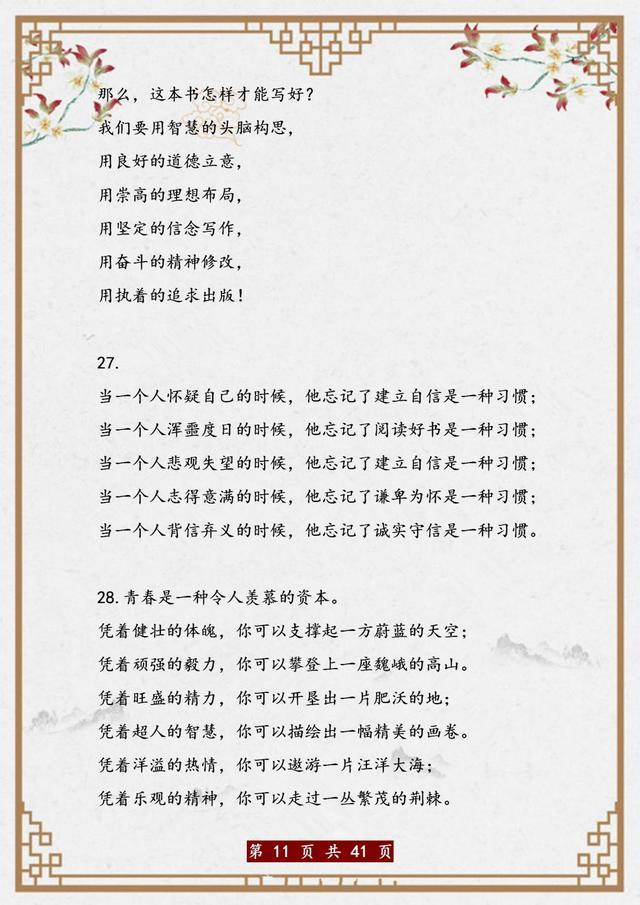 那么，这本书怎样才能写好？
我们要用智慧的头脑构思，
用良好的道德立意，
用崇高的理想布局，
用坚定的信念写作，
用奋斗的精神修改，
用执着的追求出版！
27.
当一个人怀疑自己的时候，他忘记了建立自信是一种习惯；
当一个人浑噩度日的时候，他忘记了阅读好书是一种习惯；
当一个人悲观失望的时候，他忘记了建立自信是一种习惯；
当一个人志得意满的时候，他忘记了谦卑为怀是一种习惯；
当一个人背信弃义的时候，他忘记了诚实守信是一种习惯。
28.青春是一种令人羡慕的资本。
凭着健壮的体魄，你可以支撑起一方蔚蓝的天空；
凭着顽强的毅力，你可以攀登上一座魏峨的高山。
凭着旺盛的精力，你可以开垦出一片肥沃的地；
凭着超人的智慧，你可以描绘出一幅精美的画卷。
凭着洋溢的热情，你可以遨游一片汪洋大海；
凭着乐观的精神，你可以走过一丛繁茂的荆棘。
第 11 页 共 41 页